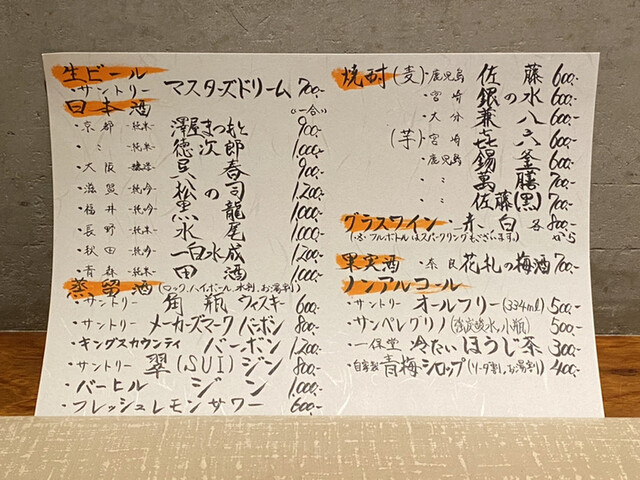 生ビール
・サントリー マスターズドリーム 700.-
日本酒 (一合)
・京都 -純米- 澤屋まつもと 900.-
・〃 -純米- 徳次郎 1,000.-
・大阪 呉春 900.-
・滋賀 -純吟- 松の司 1,200.-
・福井 -純吟- 黒龍 1,000.-
・長野 -純米- 水尾 1,000.-
・秋田 -純吟- 一白水成 1,200.-
・青森 -純米- 田酒 1,000.-
蒸留酒 (ロック、ハイボール、水割、お湯割)
・サントリー 角瓶ウィスキー 600.-
・サントリー メーカーズマークバーボン 800.-
・キングスカウンティ バーボン 1,200.-
・サントリー 翠(SUI)ジン 800.-
・バーヒル ジン 1,000.-
・フレッシュレモンサワー 600.-
焼酎 (麦)・鹿児島 佐藤 600.-
・宮崎 銀の水 600.-
・大分 兼八 600.-
(芋)・宮崎 㐂六 600.-
・鹿児島 錫釜 700.-
・〃 萬膳 700.-
・〃 佐藤(黒) 700.-
グラスワイン・赤、白 各800.-から
(※フルボトルはスパークリングもございます。)
果実酒・奈良 花札の梅酒 700.-
ノンアルコール
・サントリー オールフリー(334ml) 500.-
・サンペレグリノ(強炭酸水、小瓶) 500.-
・一保堂 冷たいほうじ茶 300.-
・自家製 青梅シロップ(ソーダ割、お湯割) 400.-